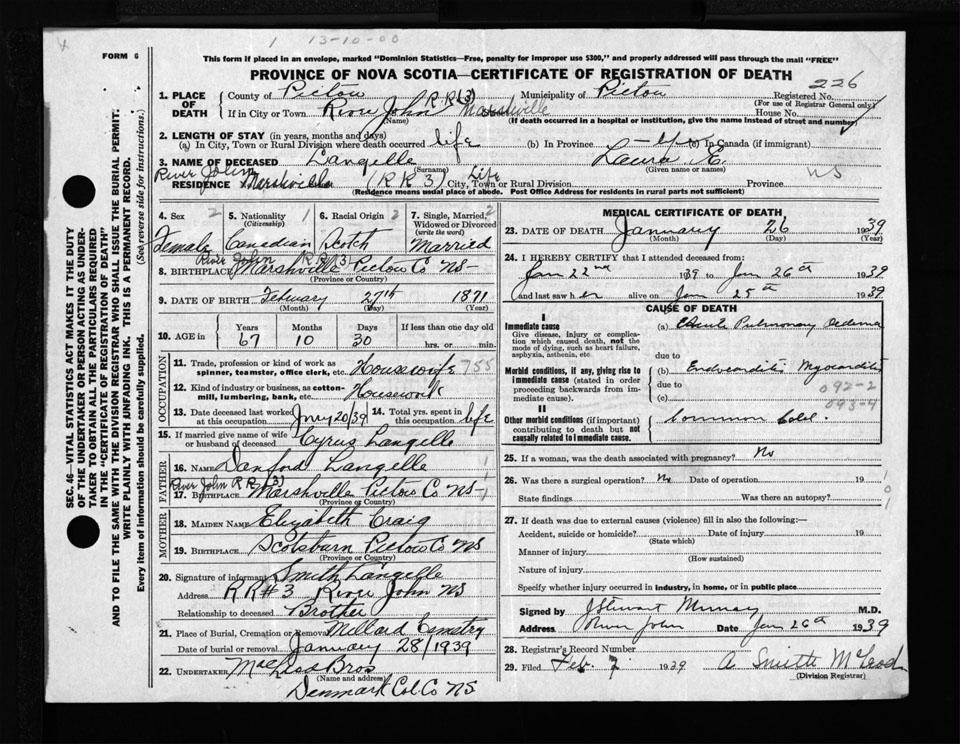 1 13-10-00
FORM 6
This form if placed in an envelope, marked "Dominion Statistics—Free, penalty for improper use $300," and properly addressed will pass through the mail "FREE"
PROVINCE OF NOVA SCOTIA—CERTIFICATE OF REGISTRATION OF DEATH
226
1. PLACE OF DEATH County of Pictou Municipality of Pictou Registered No.
(For use of Registrar General only)
If in City or Town River John RR(3) Marshville House No.
(Name) (If death occurred in a hospital or institution, give the name instead of street and number)
2. LENGTH OF STAY (in years, months and days)
(a) In City, Town or Rural Division where death occurred life (b) In Province (c) In Canada (if immigrant)
3. NAME OF DECEASED Langille Laura E.
(Surname) (Given name or names)
River John
RESIDENCE Marshville (RR3) City, Town or Rural Division Life Province NS
(Residence means usual place of abode. Post Office Address for residents in rural parts not sufficient)
4. Sex 2 5. Nationality 1 (Citizenship) 6. Racial Origin 2 7. Single, Married, Widowed or Divorced (write the word) 2
Female Canadian Scotch Married
River John RR3)
8. BIRTHPLACE Marshville Pictou Co NS
(Province or Country)
9. DATE OF BIRTH February 27th 1871
(Month) (Day) (Year)
10. AGE in Years Months Days If less than one day
67 10 30 hrs. or min.
OCCUPATION
11. Trade, profession or kind of work as spinner, teamster, office clerk, etc. Housewife 755
12. Kind of industry or business, as cotton-mill, lumbering, bank, etc. Housework
13. Date deceased last worked at this occupation Jany 20/39 14. Total yrs. spent in this occupation life
15. If married give name of wife or husband of deceased Cyrus Langille
FATHER
16. NAME Danford Langille
River John RR 3)
17. BIRTHPLACE Marshville Pictou Co NS
(Province or Country)
MOTHER
18. MAIDEN NAME Elizabeth Craig
19. BIRTHPLACE Scotsburn Pictou Co NS
(Province or Country)
20. Signature of informant Smith Langille
Address RR#3 River John NS
Relationship to deceased Brother
21. Place of Burial, Cremation or Removal Millard Cemetry
Date of burial or removal January 28/1939
22. UNDERTAKER MacLeod Bros
(Name and address)
Denmark Col. Co NS
MEDICAL CERTIFICATE OF DEATH
23. DATE OF DEATH January 26 1939
(Month) (Day) (Year)
24. I HEREBY CERTIFY that I attended deceased from:
Jan 22nd 1939 to Jan 26th 1939
and last saw her alive on Jan 25th 1939
CAUSE OF DEATH
I
Immediate cause (a) Acute Pulmonary Oedema
Give disease, injury or complication which caused death, not the mode of dying, such as heart failure, asphyxia, asthenia, etc
due to
Morbid conditions, if any, giving rise to immediate cause (stated in order proceeding backwards from immediate cause). (b) Endocarditis Myocarditis
due to 092-2
(c) 093-4
II
Other morbid conditions (if important) contributing to death but not causally related to immediate cause. Common Cold.
25. If a woman, was the death associated with pregnancy? No
26. Was there a surgical operation? No Date of operation 19
State findings Was there an autopsy?
27. If death was due to external causes (violence) fill in also the following:—
Accident, suicide or homicide? Date of injury 19
(State which)
Manner of injury
(How sustained)
Nature of injury
Specify whether injury occurred in industry, in home, or in public place
Signed by J Stewart Murray M.D.
Address River John Date Jan 26th 1939
28. Registrar's Record Number
29. Filed Feb. 7 1939 A Smith McLeod
(Division Registrar)
SEC. 46—VITAL STATISTICS ACT MAKES IT THE DUTY
OF THE UNDERTAKER OR PERSON ACTING AS UNDERTAKER TO OBTAIN ALL THE PARTICULARS REQUIRED
IN THE "CERTIFICATE OF REGISTRATION OF DEATH"
AND TO FILE THE SAME WITH THE DIVISION REGISTRAR WHO SHALL ISSUE THE BURIAL PERMIT.
WRITE PLAINLY WITH UNFADING INK. THIS IS A PERMANENT RECORD.
Every item of information should be carefully supplied. (See reverse side for instructions.)